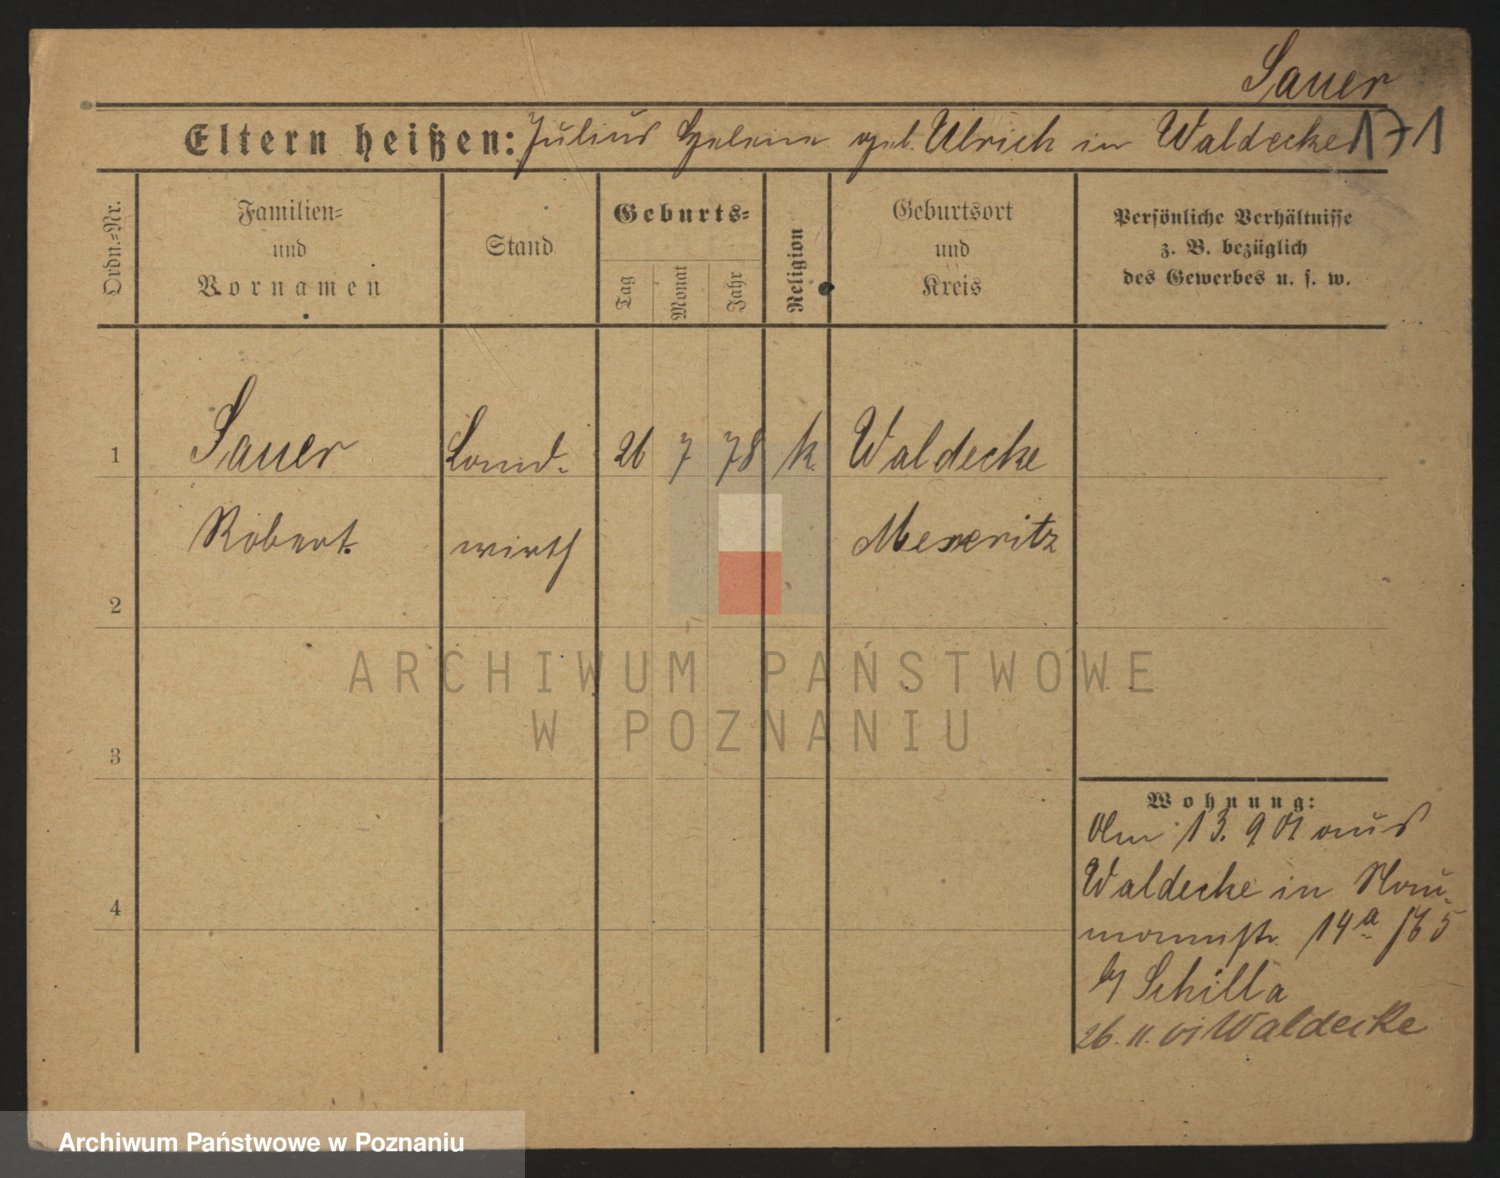 Sauer
Eltern heißen: Julius Helene geb. Ulrich in Waldecke 171
Ordn.-Nr.
Familien- und Vornamen
Stand
Geburts-
Tag
Monat
Jahr
Religion
Geburtsort und Kreis
Persönliche Verhältnisse
z. B. bezüglich
des Gewerbes u. s. w.
1 Sauer Land- 26 7 78 k. Waldecke
Robert wirth Meseritz
2
3
4
Wohnung:
Am 13. 9 01 aus
Waldecke in Nau-
mannstr. 14a
b/ Schilla
26. 11. 01 Waldecke
ARCHIWUM PAŃSTWOWE
W POZNANIU
Archiwum Państwowe w Poznaniu